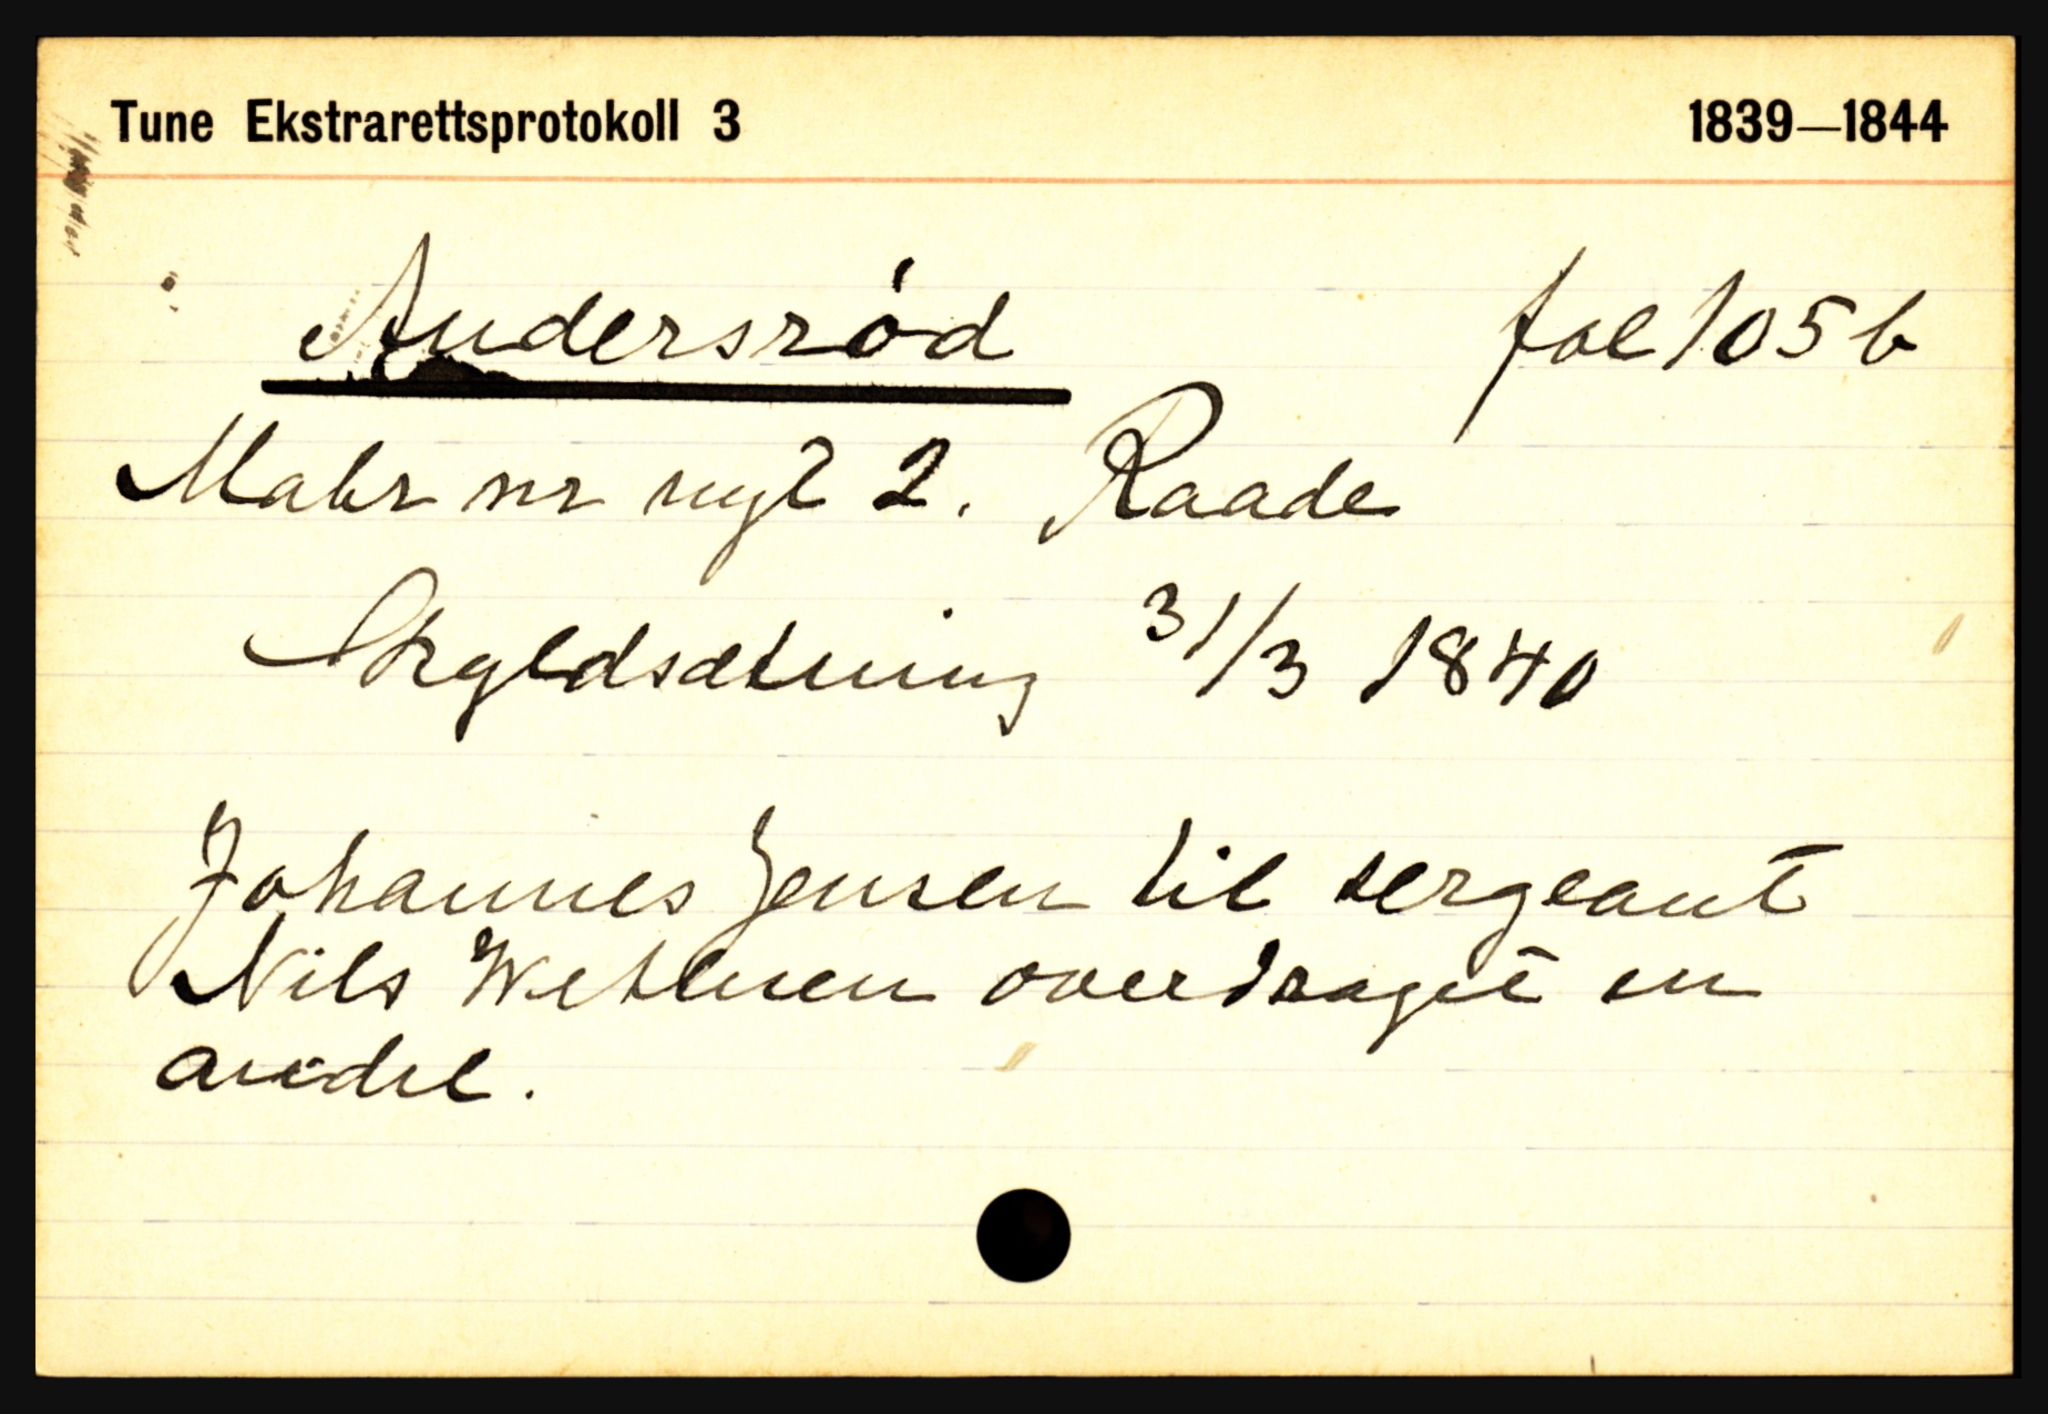 Tune Ekstrarettsprotokoll 3 1839—1844
Andersrød fol 105 b
Matr nr nyt 2. Raade
Skyldsætning 31/3 1840
Johannes Jensen til sergeant
Nils overdraget en
andel.